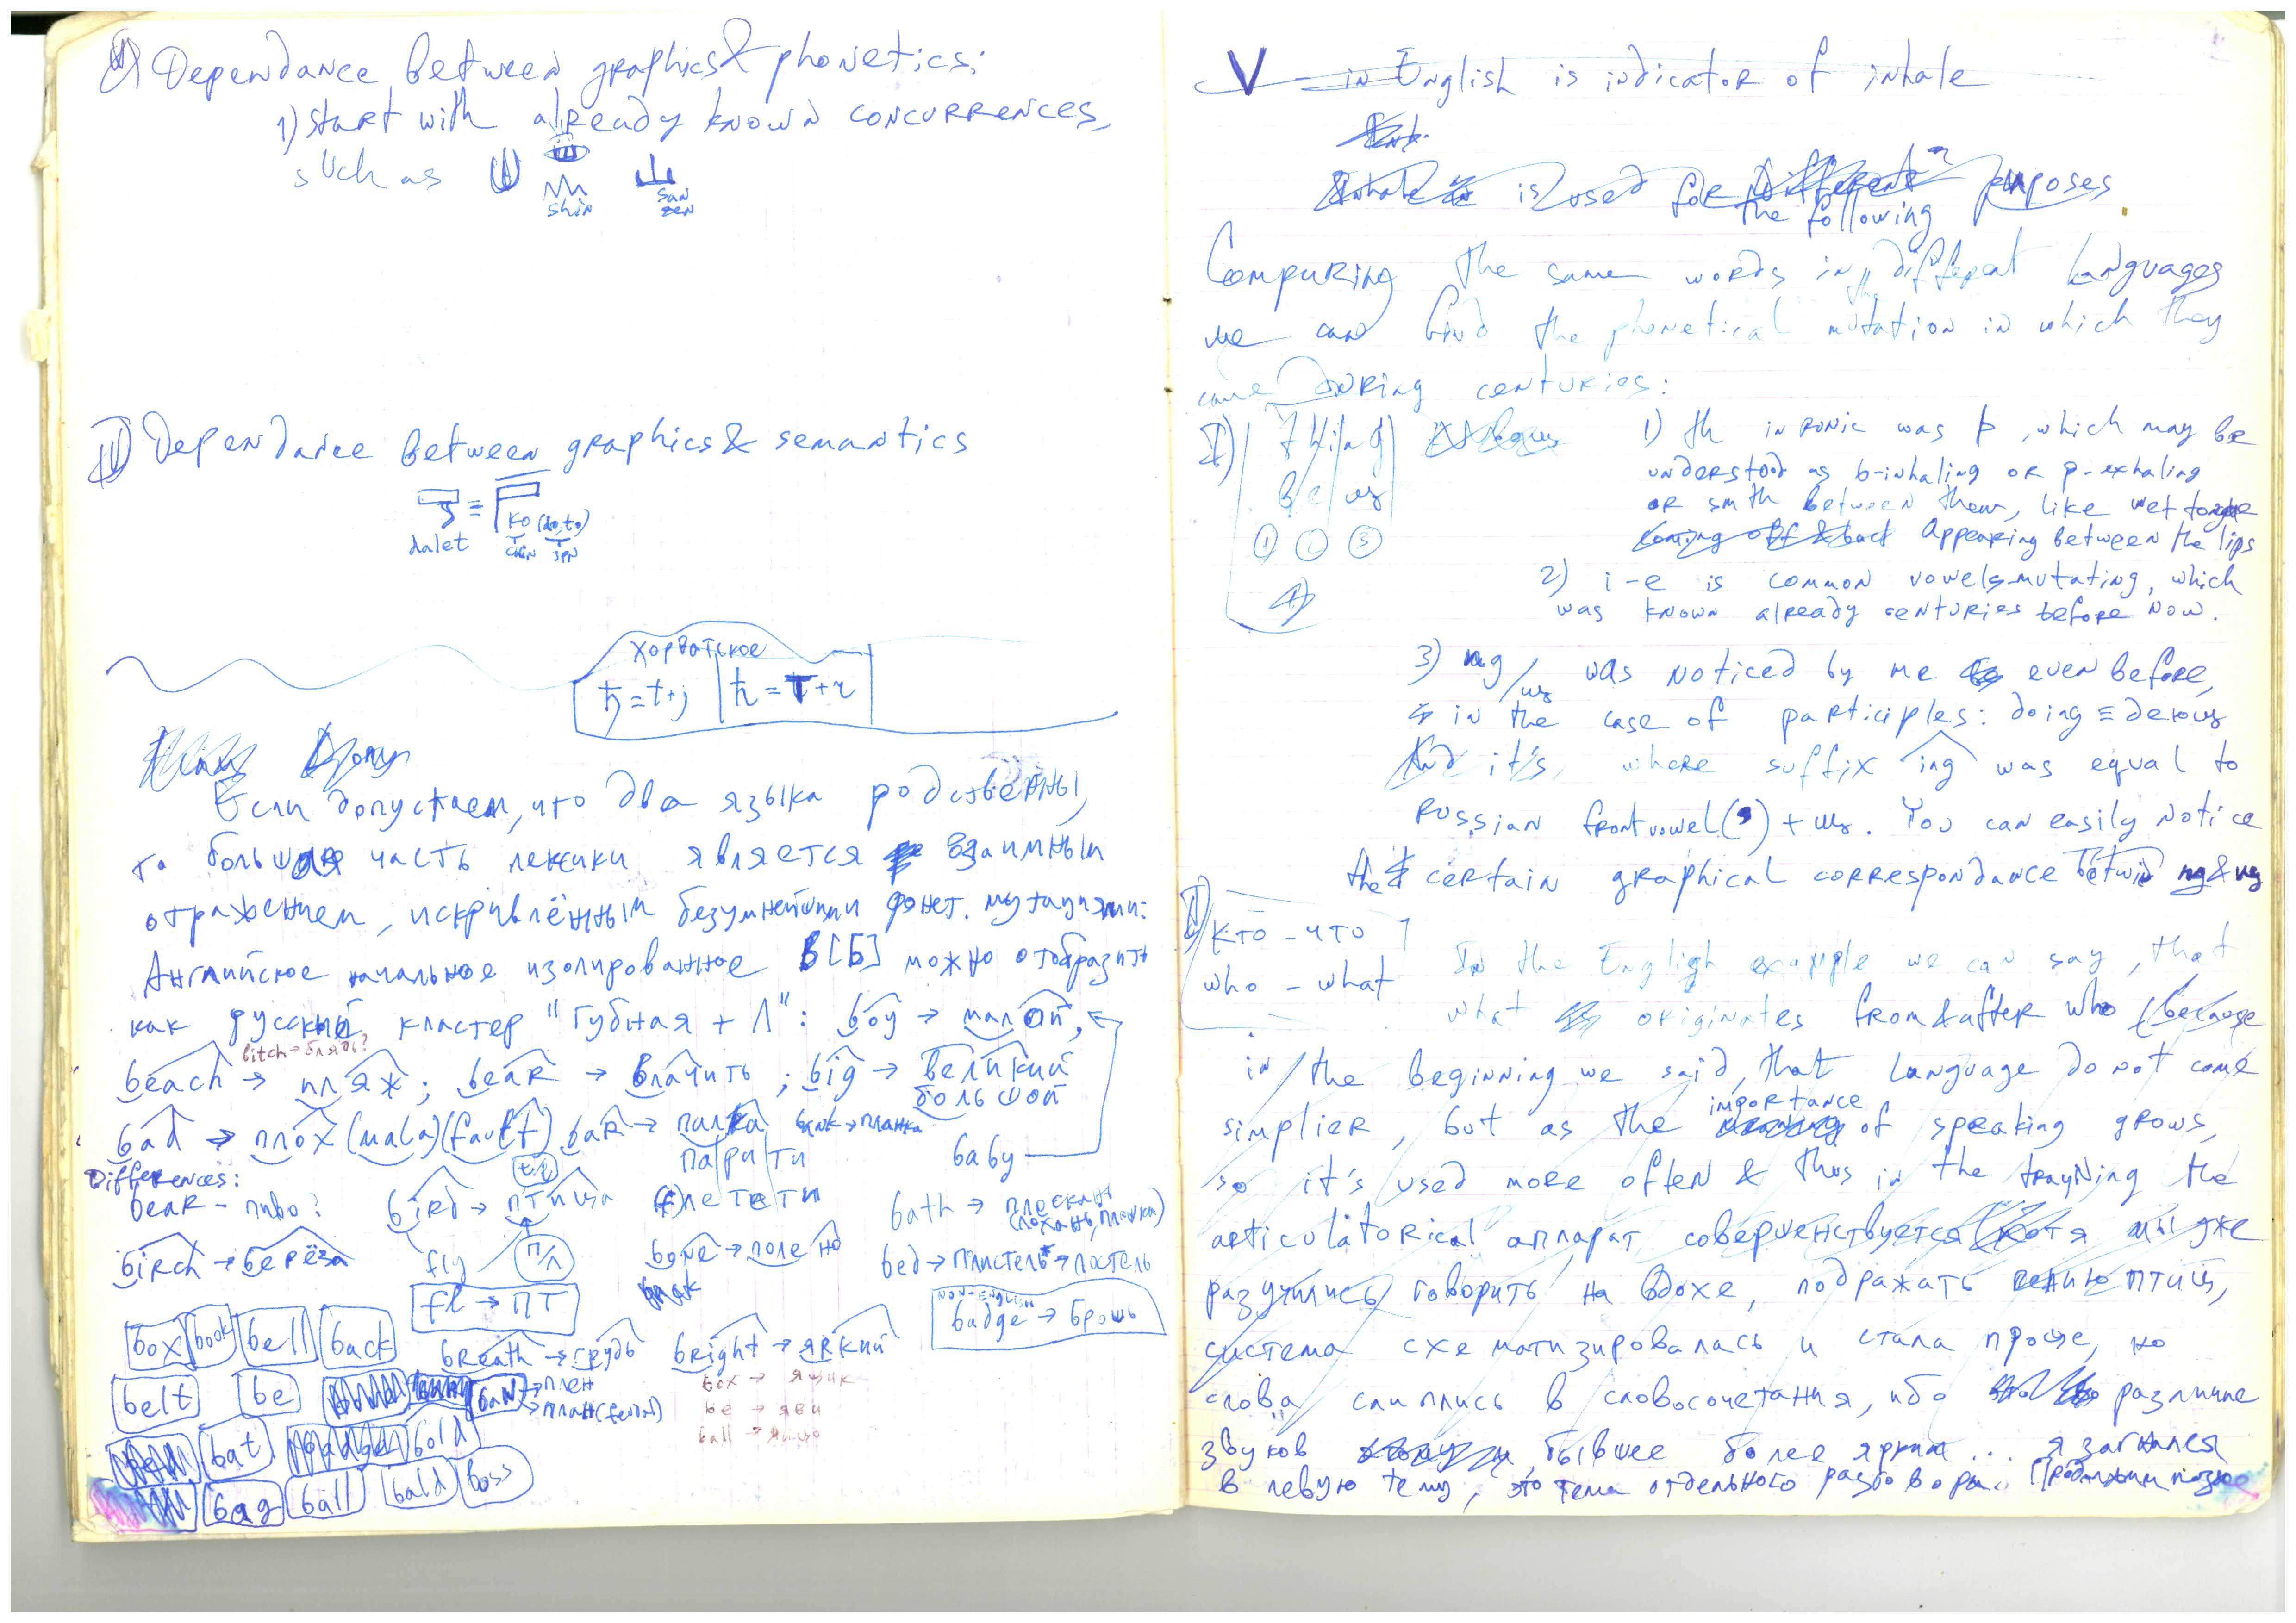 Dependance between graphics & phonetics:
1) start with already known concurrences,
such as
shin
san
zen
II) Dependance between graphics & semantics
dalet
KO (do, to)
CHIN JPN
хорватское
ђ = t + j
ћ = т + ч
Если допускаем, что два языка родственны,
то большая часть лексики является взаимным
отражением, искривлённым безумнейшими фонет. мутациями:
Английское начальное изолированное B [Б] можно отобразить
как русский кластер "губная + Л": boy → малой,
bitch → блядь?
beach → пляж; bear → влачить; big → великий
большой
bad → плох (mala) (fault) bar → палка bank → планка
парити
baby
Differences:
bear - пиво? bird → птица (f) летети bath → плескать
(лохань, плошка)
birch → берёза fly п/л bone → полено bed → плистель* → постель
fl → ПТ
NON-ENGLISH
badge → брошь
box book bell back
breath → грудь bright → яркий
belt be ban → плен
→ план (feodal)
box → ящик
be → яви
ball → яйцо
bat bold
bag ball bald boss
V - in English is indicator of inhale
is used for the following purposes
Comparing the same words in the different languages
we can find the phonetical mutation in which they
came during centuries:
I) thing
вещь
1 2 3
1) th in runic was þ, which may be
understood as b-inhaling or p-exhaling
or smth between them, like wet tongue
coming off & back appearing between the lips
2) i-e is common vowels-mutating, which
was known already centuries before now.
3) ng/щь was noticed by me even before,
in the case of participles: doing ≡ деющ
And it's, where suffix ing was equal to
Russian frontvowel(э) + щь. You can easily notice
the certain graphical correspondance betwin ng & щ
II) кто - что
who - what
In the English example we can say, that
what originates from & after who (because
in the beginning we said, that language do not come
simplier, but as the importance of speaking grows,
so it's used more often & thus in the trayning the
articulatorical аппарат совершенствуется (хотя мы уже
разучились говорить на вдохе, подражать пению птиц,
система схематизировалась и стала проще, но
слова слиплись в словосочетания, ибо различие
звуков бывшее более ярким... я загнался
в левую тему, это тема отдельного разговора. Продолжим позже